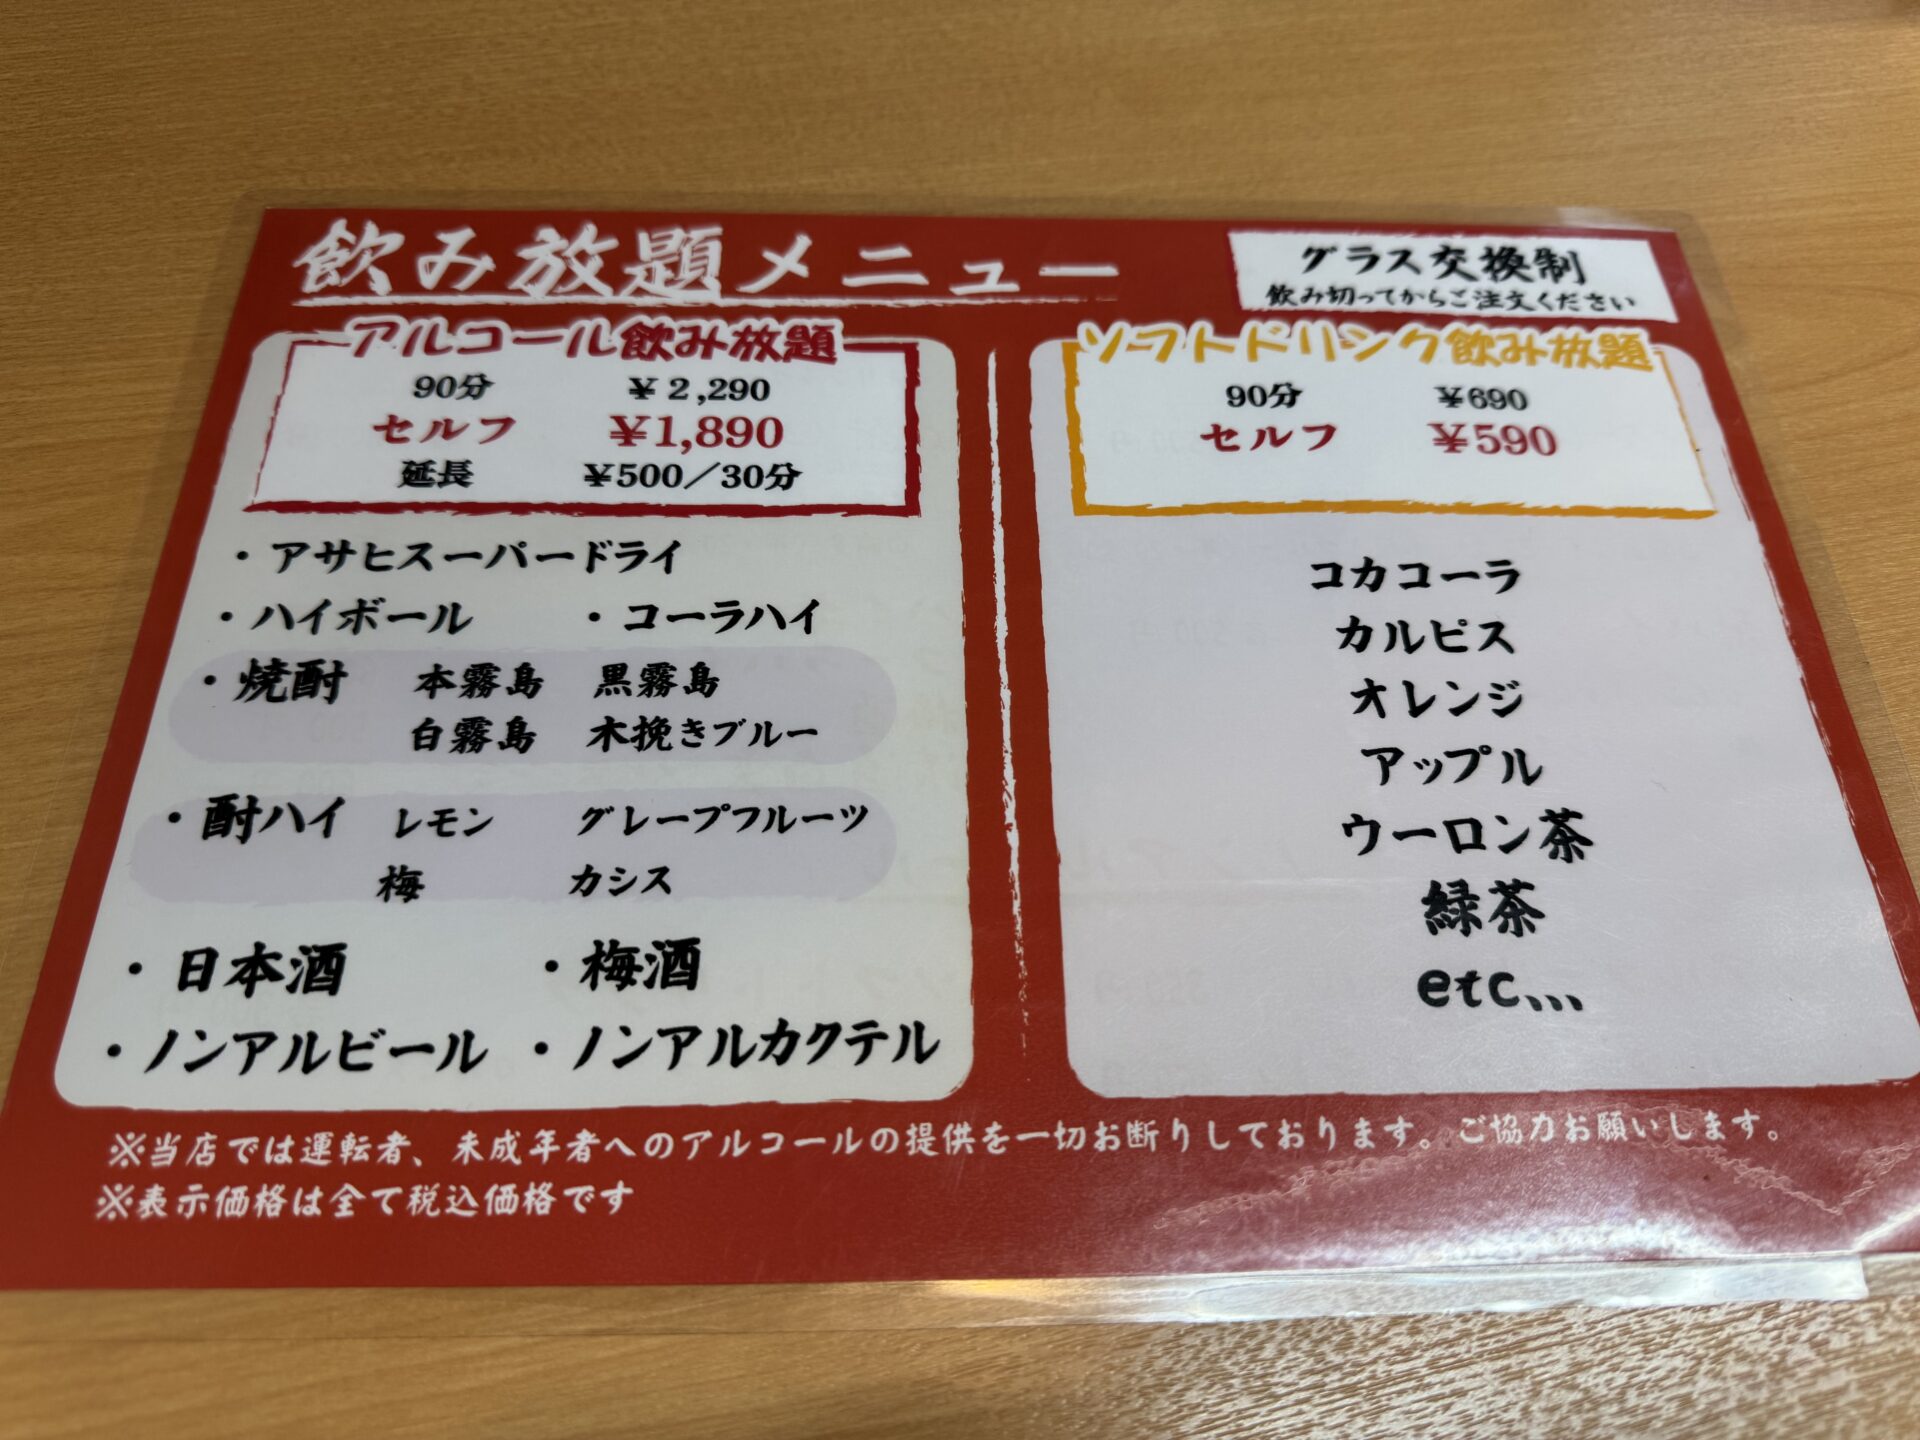 飲み放題メニュー
グラス交換制
飲み切ってからご注文ください
アルコール飲み放題
90分 ¥2,290
セルフ ¥1,890
延長 ¥500/30分
・アサヒスーパードライ
・ハイボール ・コーラハイ
・焼酎 本霧島 黒霧島
白霧島 木挽きブルー
・酎ハイ レモン グレープフルーツ
梅 カシス
・日本酒 ・梅酒
・ノンアルビール ・ノンアルカクテル
ソフトドリンク飲み放題
90分 ¥690
セルフ ¥590
コカコーラ
カルピス
オレンジ
アップル
ウーロン茶
緑茶
etc、、、
※当店では運転者、未成年者へのアルコールの提供を一切お断りしております。ご協力お願いします。
※表示価格は全て税込価格です